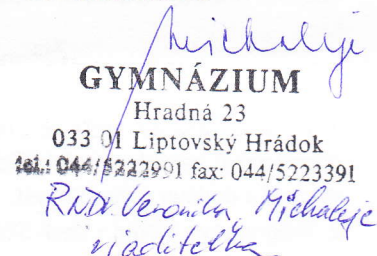 Michaleje
GYMNÁZIUM
Hradná 23
033 01 Liptovský Hrádok
tel.: 044/5222991 fax: 044/5223391
RNDr. Veronika Michaleje
riaditeľka